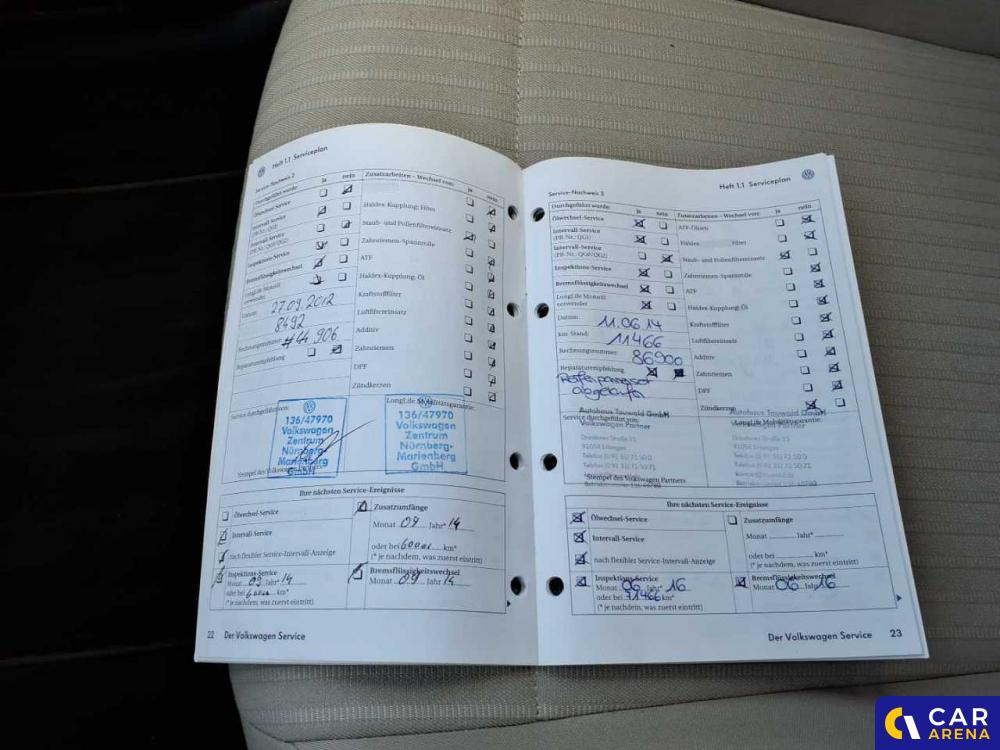 Heft 1.1 Serviceplan
Service-Nachweis 2
Durchgeführt wurde: ja nein Zusatzarbeiten – Wechsel von: ja nein
Ölwechsel-Service
Haldex-Kupplung: Filter
Intervall-Service
(PR-Nr.: QG1)
Staub- und Pollenfiltereinsatz
Intervall-Service
(PR-Nr.: QG0/QG2)
Zahnriemen-Spannrolle
Inspektions-Service
ATF
Bremsflüssigkeitswechsel
Haldex-Kupplung: Öl
LongLife Motoröl
verwendet
Kraftstofffilter
Datum: 27.09.2012
Luftfiltereinsatz
8492
Additiv
Rechnungsnummer: #44 906
Zahnriemen
Reparaturempfehlung
DPF
Zündkerzen
Service durchgeführt von:
LongLife Mobilitätsgarantie:
136/47970
Volkswagen
Zentrum
Nürnberg-
Marienberg
GmbH
136/47970
Volkswagen
Zentrum
Nürnberg-
Marienberg
GmbH
Stempel des Volkswagen Partners
Ihre nächsten Service-Ereignisse
Ölwechsel-Service
Zusatzumfänge
Intervall-Service
Monat 09 Jahr* 14
nach flexibler Service-Intervall-Anzeige
oder bei 60000 km*
(* je nachdem, was zuerst eintritt)
Inspektions-Service
Monat 09 Jahr* 14
oder bei 60000 km*
(* je nachdem, was zuerst eintritt)
Bremsflüssigkeitswechsel
Monat 09 Jahr 14
22 Der Volkswagen Service
Heft 1.1 Serviceplan
Service-Nachweis 3
Durchgeführt wurde: ja nein Zusatzarbeiten – Wechsel von: ja nein
Ölwechsel-Service
ATF-Ölsieb
Intervall-Service
(PR-Nr.: QG1)
Haldex Filter
Intervall-Service
(PR-Nr.: QG0/QG2)
Staub- und Pollenfiltereinsatz
Inspektions-Service
Zahnriemen-Spannrolle
Bremsflüssigkeitswechsel
ATF
LongLife Motoröl
verwendet
Haldex-Kupplung: Öl
Datum: 11.06.14
Kraftstofffilter
km-Stand: 11466
Luftfiltereinsatz
Rechnungsnummer: 86900
Additiv
Reparaturempfehlung
Zahnriemen
abgelaufen
DPF
Zündkerzen
Autohaus Tauwald GmbH
Volkswagen Partner
Service durchgeführt von:
LongLife Mobilitätsgarantie:
Dresdener Straße 15
91058 Erlangen
Stempel des Volkswagen Partners
Ihre nächsten Service-Ereignisse
Ölwechsel-Service
Zusatzumfänge
Intervall-Service
Monat Jahr*
nach flexibler Service-Intervall-Anzeige
oder bei km*
(* je nachdem, was zuerst eintritt)
Inspektions-Service
Monat 06 Jahr* 16
oder bei 71466 km*
(* je nachdem, was zuerst eintritt)
Bremsflüssigkeitswechsel
Monat 06 Jahr 16
Der Volkswagen Service 23
CAR
ARENA